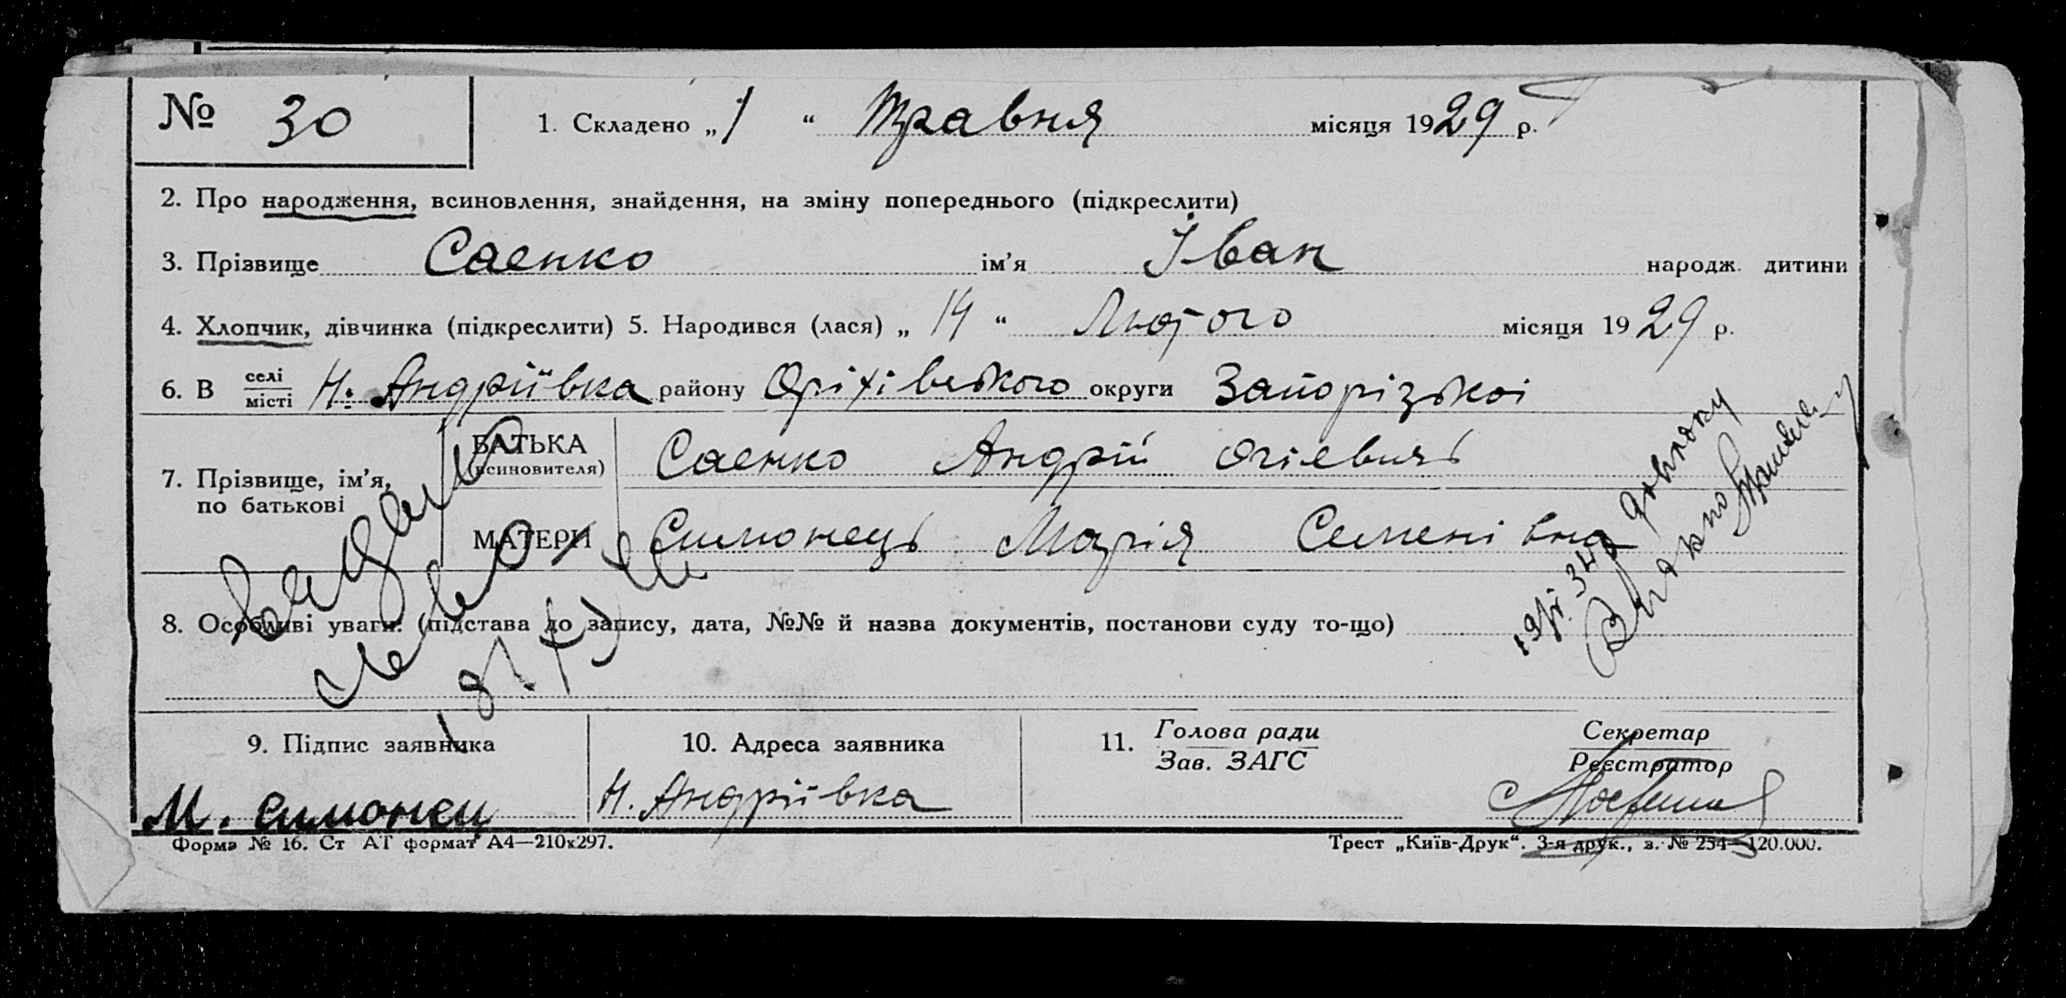 № 30 1. Складено „1“ Травня місяця 1929 р.
2. Про народження, всиновлення, знайдення, на зміну попереднього (підкреслити)
3. Прізвище Саенко ім’я Іван народж. дитини
4. Хлопчик, дівчинка (підкреслити) 5. Народився (лася) „14“ Лютого місяця 1929 р.
6. В селі місті Н. Андріївка району Оріхівського округи Запорізькоі
7. Прізвище, ім’я, по батькові
БАТЬКА (всиновителя) Саенко Андрій
МАТЕРИ Симонець Марія Семенівна
8. Особливі уваги: (підстава до запису, дата, №№ й назва документів, постанови суду то-що)
9. Підпис заявника
10. Адреса заявника
11. Голова ради Зав. ЗАГС
Секретар Реєстратор
М. Симонец
Н. Андріївка
Форма № 16. Ст АТ формат А4—210х297.
Трест „Київ-Друк“. 3-я друк., з. № 254—120.000.